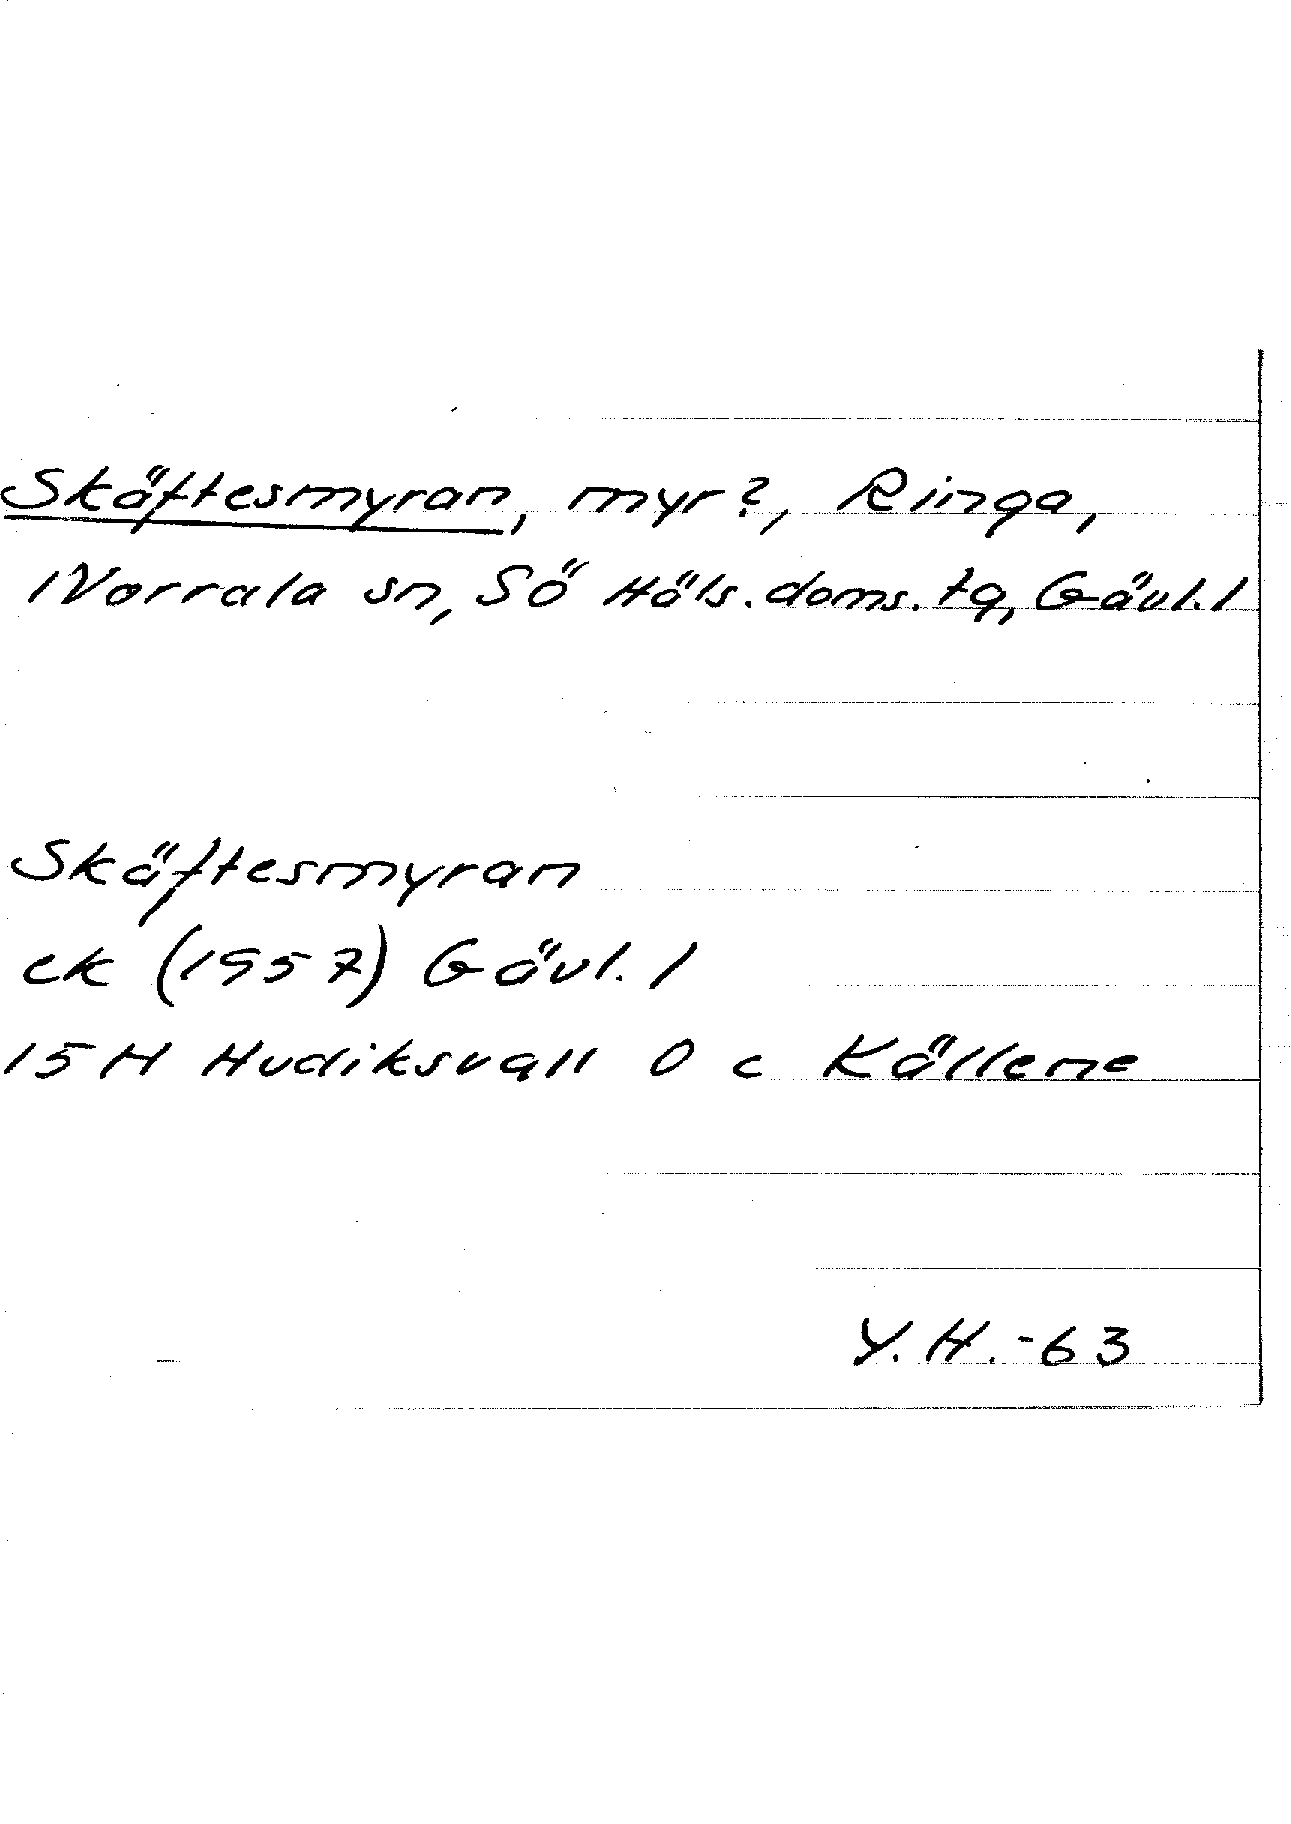 Skäftesmyran, myr?, Ringa,
Norrala sn, Sö Häls. doms. tg, Gävl. l
Skäftesmyran
ek (1957) Gävl. l
15 H Hudiksvall 0 c Källene
Y. H. -63